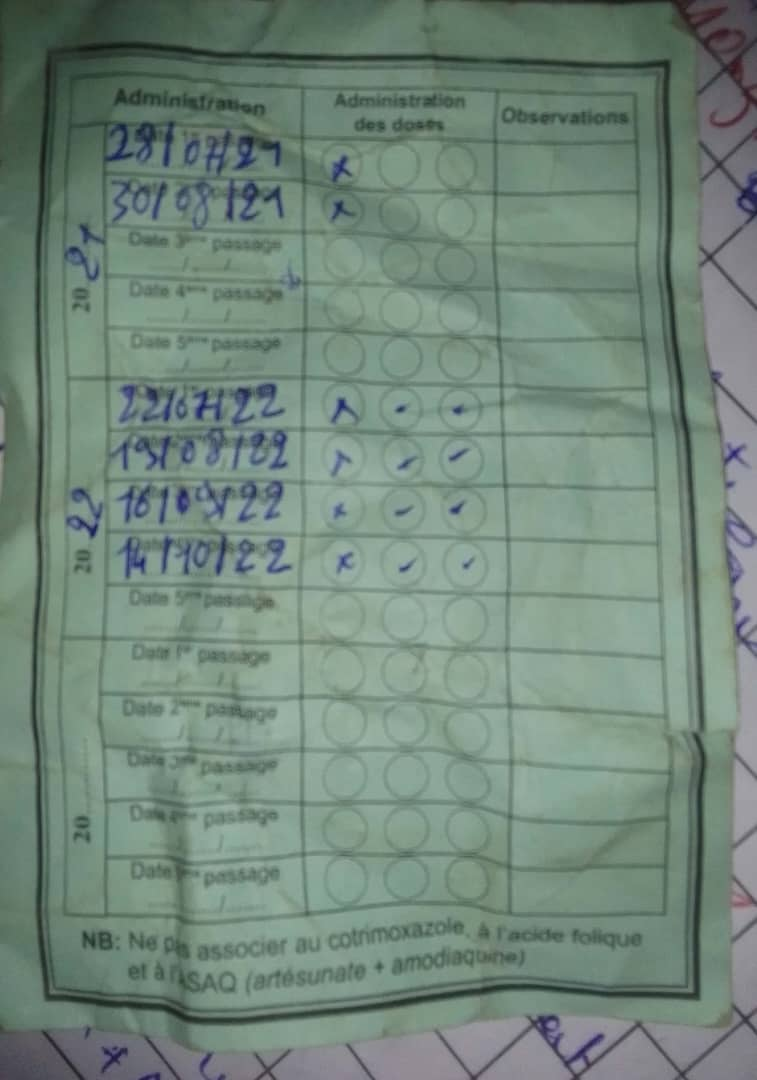 Administration
Administration des doses
Observations
2021
28/07/21 x
30/08/21 x
Date 3ème passage
/ /
Date 4ème passage
/ /
Date 5ème passage
/ /
2022
22/07/22 x - -
19/08/22 x - -
16/09/22 x - -
14/10/22 x - -
Date 5ème passage
/ /
20
Date 1er passage
/ /
Date 2ème passage
/ /
Date 3ème passage
/ /
Date 4ème passage
/ /
Date 5ème passage
/ /
NB: Ne pas associer au cotrimoxazole, à l'acide folique
et à l'ASAQ (artésunate + amodiaquine)